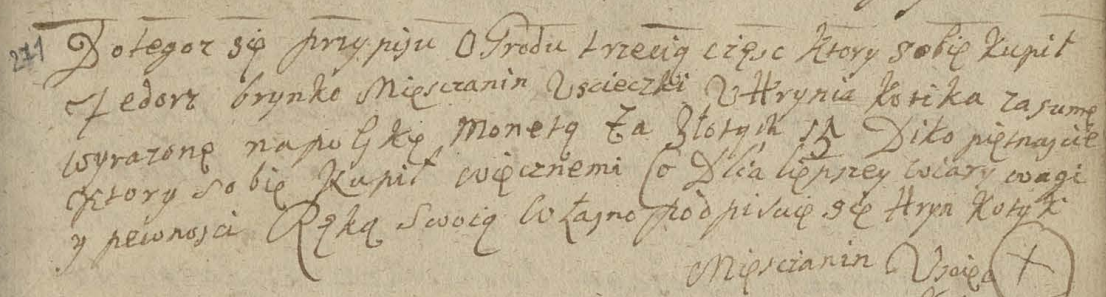 271 Dotegoz się przypisu Ogrodu trzecią częsc ktory sobię kupił
Fedorz brynko Mięsczanin Uscieczki U Hrynia Kotika zasumę
wyrazonę napolskę Monetą Za Złotych 15 Dito piętnascie
Ktory sobię Kupił więcznemi Co Dla liepszey wiary wagi
y pewnosci Ręką Swoią własno podpisuię się Hryn Kotyk
Mięsczanin